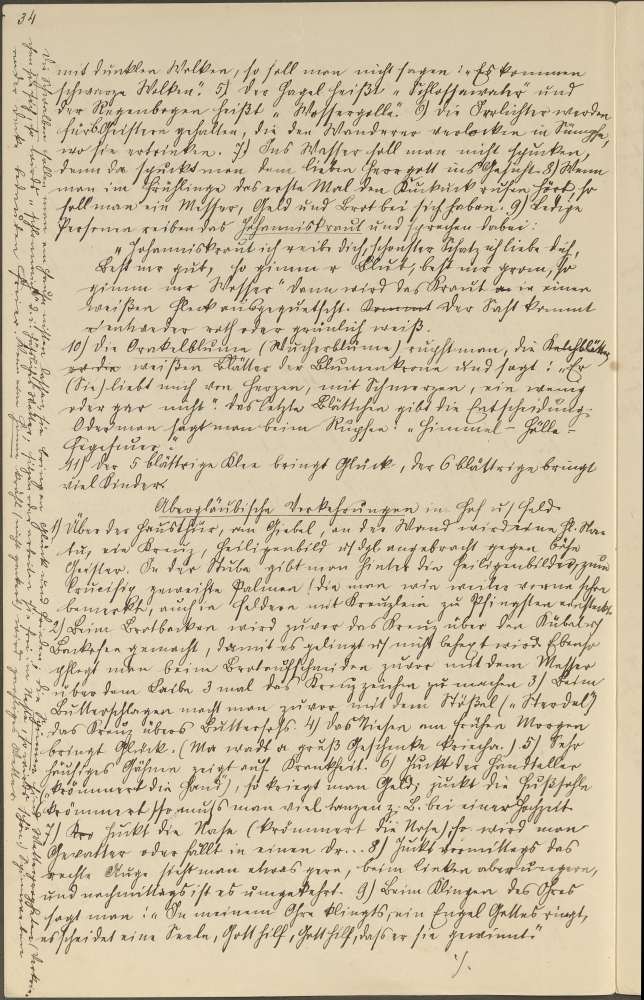 34
mit dunklen Wolken, so soll man nicht sagen: „Es kommen
schwarze Wolken." 5) Der Hagel heißt „Schlossawater" und
der Regenbogen heißt „Wossergolle." 6) Die Irrlichter werden
fürs Geistern gehalten, die den Wanderer verlocken in Sümpfe,
wo sie ertrinken. 7) Ins Wasser soll man nicht spucken,
denn da spuckt man dem lieben Herrgott ins Gesicht. 8) Wenn
man im Frühlinge das erste Mal den Kuckuck rufen hört, so
soll man ein Messer, Geld und Brot bei sich haben. 9) Ledige
Personen reiben das Johanniskraut und sprechen dabei:
„Johanniskraut ich reibe dich, schönster Schatz ich liebe dich,
best mr gut, so gimm r Blut, best mr gram, so
gimm mr Wosser" Dann wird das Kraut in einen
weißen Fleck ausgequetscht. Der Saft kommt
entweder roth oder grünlich weiß.
10) Die Orakelblume (Wucherblume) rupft man, die Kelchblätter,
weißen Blätter der Blumenkrone und sagt: „Er
(Sie) liebt mich von Herzen, mit Schmerzen, ein wenig
oder gar nicht". Das letzte Blättchen gibt die Entscheidung.
Oder man sagt man beim Rupfen: „Himmel – Hölle –
Fegefeuer."
11) Der 5 blättrige Klee bringt Glück, der 6 blättrige bringt
viel Kinder.
Abergläubische Vorkehrungen in Hof u/ Feld.
1) Über der Hausthür, am Giebel, an der Wand wird eine hl. Sta-
tue, ein Kreuz, Heiligenbild u/ dgl. angebracht gegen böse
Geister. In der Stube gibt man hinter den Heiligenbilder, zum
Crucifix geweihte Palmen (die man wie weiter vorne schon
bemerkt, auch in Feldern mit Kreuzlein zu Pfingsten einsteckt.
2) Beim Brotbacken wird zuvor das Kreuz über den Kübel u/
Backofen gemacht, damit es gelingt u/ nicht behext wird. Ebenso
pflegt man beim Brotaufschneiden zuvor mit dem Messer
über dem Laibe 3 mal das Kreuzzeichen zu machen 3) Beim
Butterschlagen macht man zuvor mit dem Stößel („Sterdel")
das Kreuz übers Butterfaß. 4) Das Niesen am frühen Morgen
bringt Glück. (Ma wadt a gruß Geschenke kriecha.) 5) Sehr
häufiges Gähnen zeigt auf Krankheit. 6) Juckt der Handteller
(krömmert die Hand), so kriegt man Geld; juckt die Fußsohle
(krömmert) so muß man viel tanzen z. B. bei einer Hochzeit.
7) Juckt die Nase (krömmert die Nose), so wird man
Gevatter oder fällt in einen Dr... 8) Juckt vormittags das
rechte Auge sieht man etwas gern, beim linken aber ungern,
und nachmittags ist es umgekehrt. 9) Beim Klingen des Ohres
sagt man: „In meinem Ohre klingts, ein Engel Gottes singt,
es scheidet eine Seele, Gott hilf, Gott hilf, daß er sie gewinnt."
./.